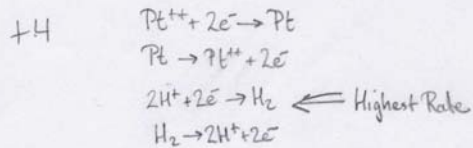 +4 Pt⁺⁺ + 2e⁻ → Pt
Pt → Pt⁺⁺ + 2e⁻
2H⁺ + 2e⁻ → H₂ ⇐ Highest Rate
H₂ → 2H⁺ + 2e⁻